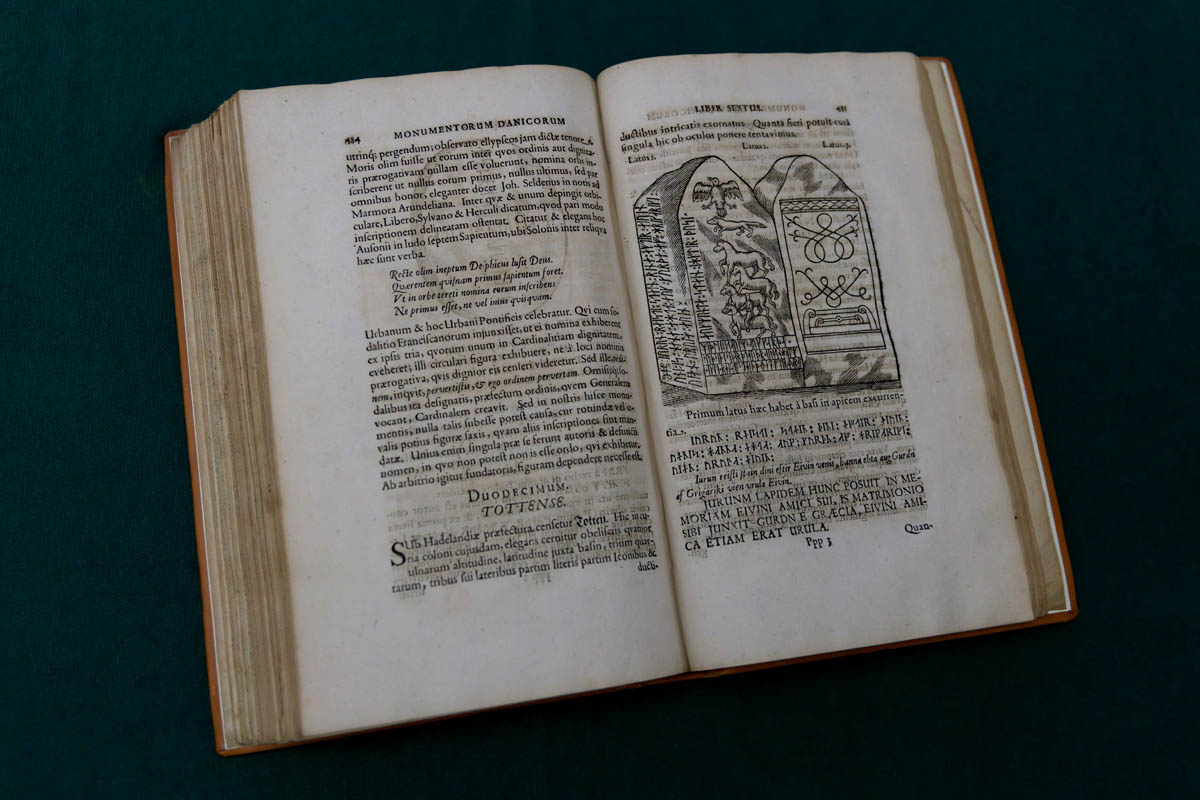 484
MONUMENTORUM DANICORUM
utrinq; pergendum; observato ellypseos jam dictæ tenore.
Moris olim fuisse ut eorum inter qvos ordinis aut dignita-
tis prærogativam nullam esse voluerunt, nomina orbi in-
scriberent ut nullus eorum primus, nullus ultimus, sed par
omnibus honor, eleganter docet Joh. Seldenus in notis ad
Marmora Arundeliana. Inter qvæ & unum depingit orbi-
culare, Libero, Sylvano & Herculi dicatum, qvod pari modo
inscriptionem delineatam ostentat. Citatur & elegans hoc
Ausonii in ludo septem Sapientum, ubi Solonis inter reliqva
hæc sunt verba.
Recte olim ineptum Delphicus lusit Deus.
Qværentem qvisnam primus sapientum foret,
Vt in orbe tereti nomina eorum inscribens
Ne primus esset, ne vel imus qvisqvam.
Urbanum & hoc Urbani Pontificis celebratur. Qvi cum so-
dalitio Franciscanorum injunxisset, ut ei nomina exhiberent
ex ipsis tria, qvorum unum in Cardinalitiam dignitatem
eveheret; illi circulari figura exhibuere, ne à loci nominis
prærogativa, qvis dignior eis censeri videretur. Sed ille,
nem, inqvit, pervertistis, & ego ordinem pervertam. Omissiqs; so-
dalibus ita designatis, præfectum ordinis, qvem Generalem
vocant, Cardinalem creavit. Sed in nostris hisce monu-
mentis, nulla talis subesse potest causa, cur rotundæ vel o-
valis potius figuræ saxis, qvam aliis inscriptiones sint man-
datæ. Unius enim singula præ se ferunt autoris & defuncti
nomen, in qvo non potest non is esse ordo, qvi exhibetur.
Ab arbitrio igitur fundatoris, figuram dependere necesse est.
DUODECIMUM,
TOTTENSE.
SUb Hadelandiæ præfectura censetur Totten. Hic in cu-
ria coloni cujusdam, elegans cernitur obeliscus, qvatuor
ulnarum altitudine, latitudine juxta basin, trium qvar-
tarum, tribus sui lateribus partim literis partim Iconibus &
ducti-
LIBER SEXTUS.
485
ductibus intricatis exornatus. Quanta fieri potuit cura
singula hic ob oculos ponere tentavimus.
Latus 1.
Latus 2.
Latus 3.
Primum latus hæc habet à basi in apicem excurren-
tia.
Iurun reisti stain dini eftir Eivin venis, hanna ehta aug Gurdn
af Grigariki vien urula Eivin.
JURUNM LAPIDEM HUNC POSUIT IN ME-
MORIAM EIVINI AMICI SUI, IS MATRIMONIO
SIBI JUNXIT GURDN E GRÆCIA, EIVINI AMI-
CA ETIAM ERAT URULA.
Ppp 3
Qvan-